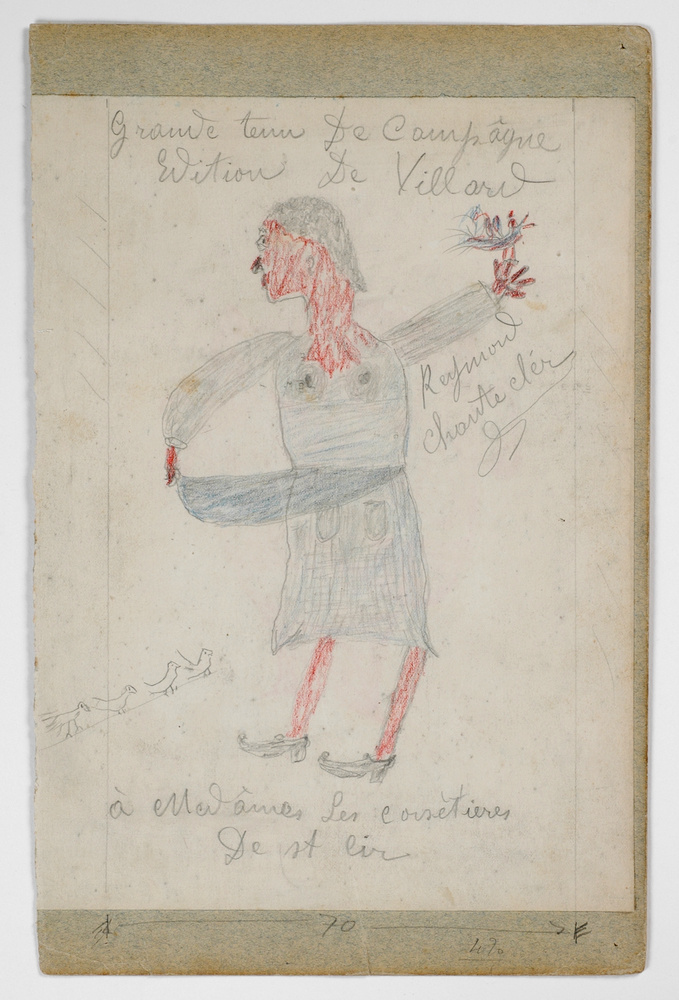 Grande tenu De Compâgne
Edition De Villard
Reymond
chante clér
à Medâmes Les corsetieres
De st Cir
70